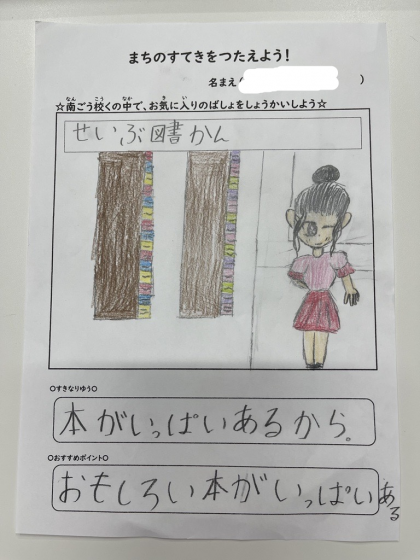 まちのすてきをつたえよう！
名まえ（ ）
☆南ごう校くの中で、お気に入りのばしょをしょうかいしよう☆
せいぶ図書かん
○すきなりゆう○
本がいっぱいあるから。
○おすすめポイント○
おもしろい本がいっぱいある